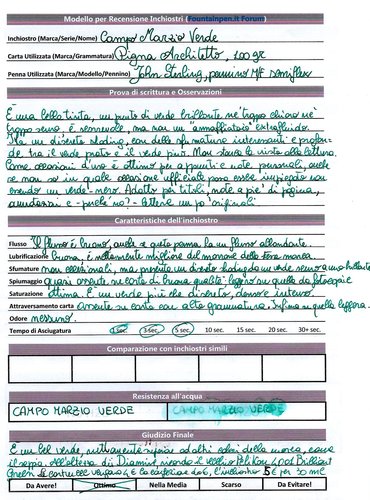 Modello per Recensione Inchiostri (Fountainpen.it Forum)
Inchiostro (Marca/Serie/Nome) Campo Marzio Verde
Carta Utilizzata (Marca/Grammatura) Pigna Architetto, 100 gr
Penna Utilizzata (Marca/Modello/Pennino) John Sterling, pennino M/F semiflex
Prova di scrittura e Osservazioni
È una bella tinta, un punto di verde brillante, né troppo chiaro né
troppo scuro, è scorrevole, ma non un "annaffiatoio" extrafluido.
Ha un discreto shading, con delle sfumature interessanti e profon-
de, tra il verde prato e il verde pino. Non stanca la vista alla lettura.
Come occasioni d'uso è ottimo per appunti e note personali, anche
se non so in quale occasione ufficiale possa essere impiegato non
essendo un verde-nero. Adatto per titoli, note a piè di pagina,
annotazioni e - perché no? - lettere un po' originali
Caratteristiche dell'inchiostro
Flusso Il flusso è buono, anche se questa penna ha un flusso abbondante.
Lubrificazione buona, è nettamente migliore del marrone della stessa marca.
Sfumature non eccezionali, ma presenta un discreto shading da un verde scuro a uno brillante
Spiumaggio quasi assente su carta di buona qualità, leggero su quella da fotocopie
Saturazione ottima. È un verde più che discreto, denso e intenso.
Attraversamento carta assente su carta con alta grammatura. Infima su quella leggera.
Odore nessuno.
Tempo di Asciugatura 1 sec. 3 sec. 5 sec. 10 sec. 15 sec. 20 sec. 30+ sec.
Comparazione con inchiostri simili
Resistenza all'acqua
CAMPO MARZIO VERDE CAMPO MARZIO VERDE
Giudizio Finale
È un bel verde, nettamente superiore ad altri colori della marca, come
il seppia. All'altezza di Diamine, ricorda il vecchio Pelikan 4001 Brilliant
Green. le cartucce vengono 4 € la confezione da 6, l'inchiostro 5 € per 30 ml
Da Avere! Ottimo Nella Media Scarso Da Evitare!